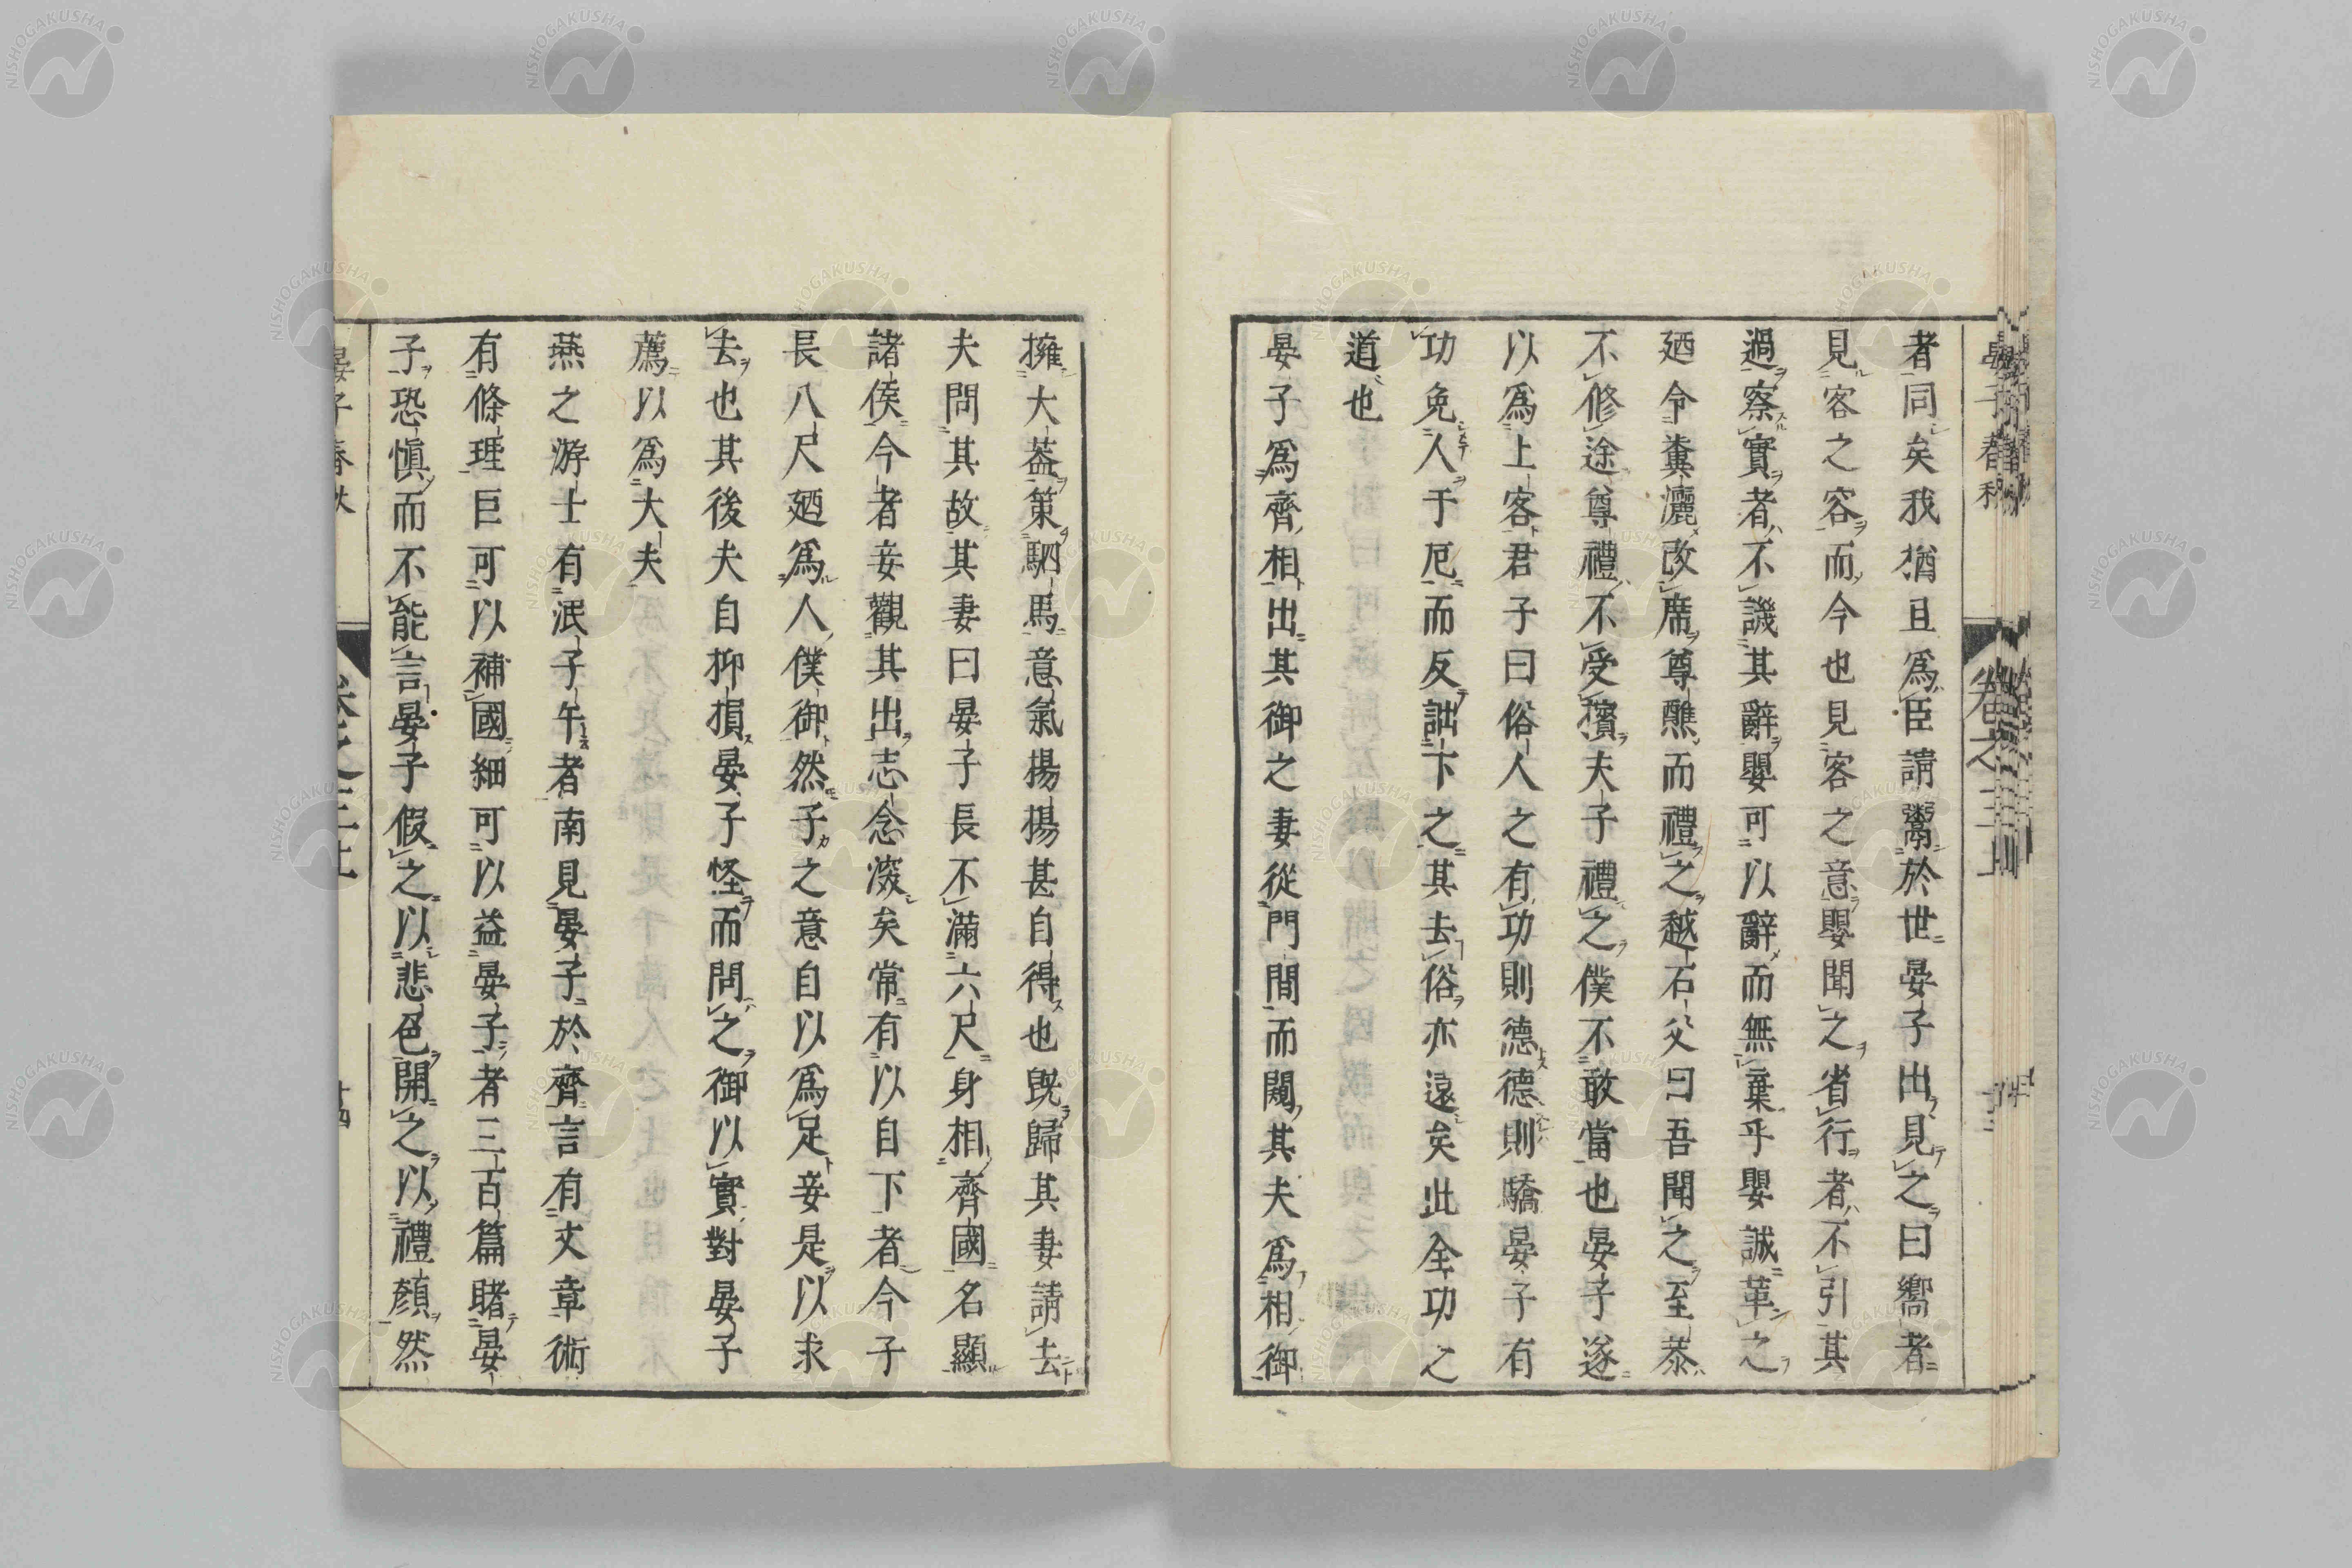 者同矣我猶且爲臣請鬻於世晏子出見之曰嚮者
見客之容而今也見客之意嬰聞之省行者不引其
過察實者不譏其辭嬰可以辭而無棄乎嬰誠革之
廼令糞灑改席尊醮而禮之越石父曰吾聞之至恭
不修途尊禮不受擯夫子禮之僕不敢當也晏子遂
以爲上客君子曰俗人之有功則德德則驕晏子有
功免人于厄而反詘下之其去俗亦遠矣此全功之
道也
晏子爲齊相出其御之妻從門間而闚其夫爲相御
擁大蓋策駟馬意氣揚揚甚自得也既歸其妻請去
夫問其故其妻曰晏子長不滿六尺身相齊國名顯
諸侯今者妾觀其出志念深矣常有以自下者今子
長八尺廼爲人僕御然子之意自以爲足妾是以求
去也其後夫自抑損晏子怪而問之御以實對晏子
薦以爲大夫
燕之游士有泯子午者南見晏子於齊言有文章術
有條理巨可以補國細可以益晏子者三百篇睹晏
子恐愼而不能言晏子假之以悲色開之以禮顏然
晏子春秋 卷之三上 十四